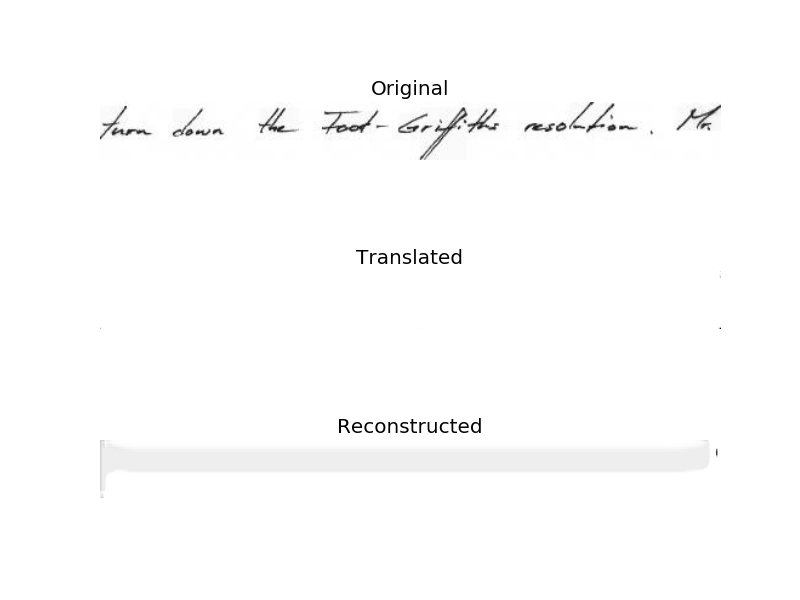 Original
turn down the Foot-Griffiths resolution. Mr.
Translated
Reconstructed